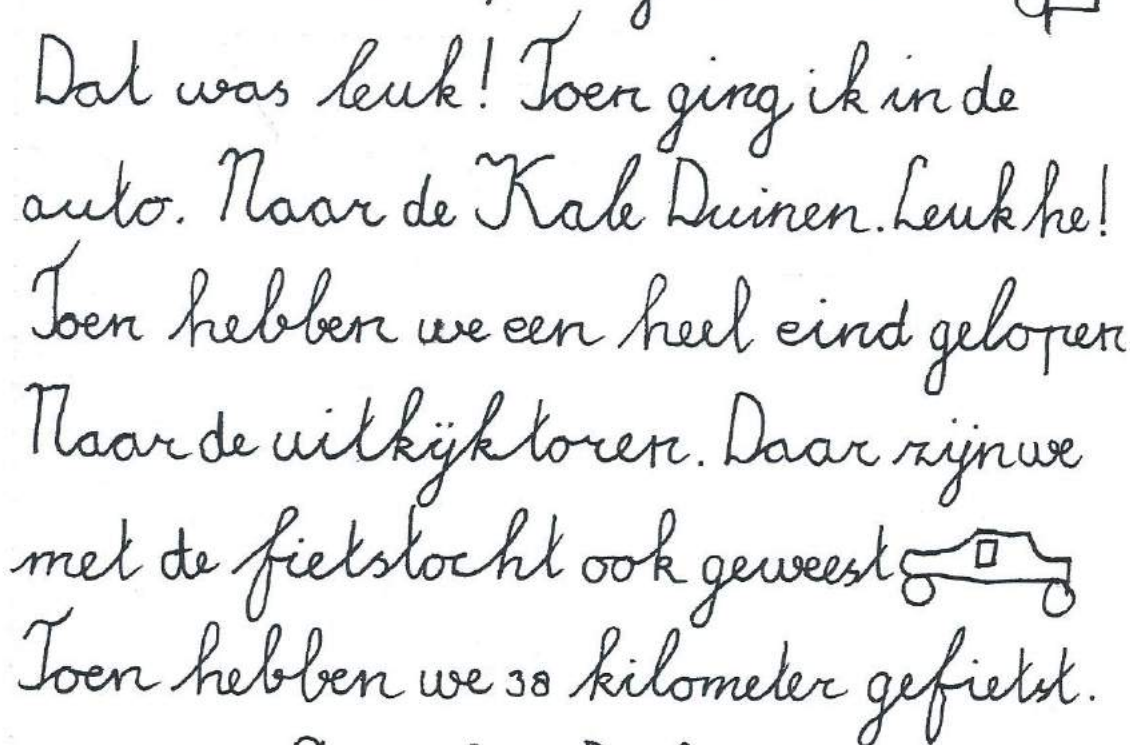 Dat was leuk! Toen ging ik in de
auto. Naar de Kale Duinen. Leuk he!
Toen hebben we een heel eind gelopen
Naar de uitkijktoren. Daar zijn we
met de fietstocht ook geweest
Toen hebben we 38 kilometer gefietst.